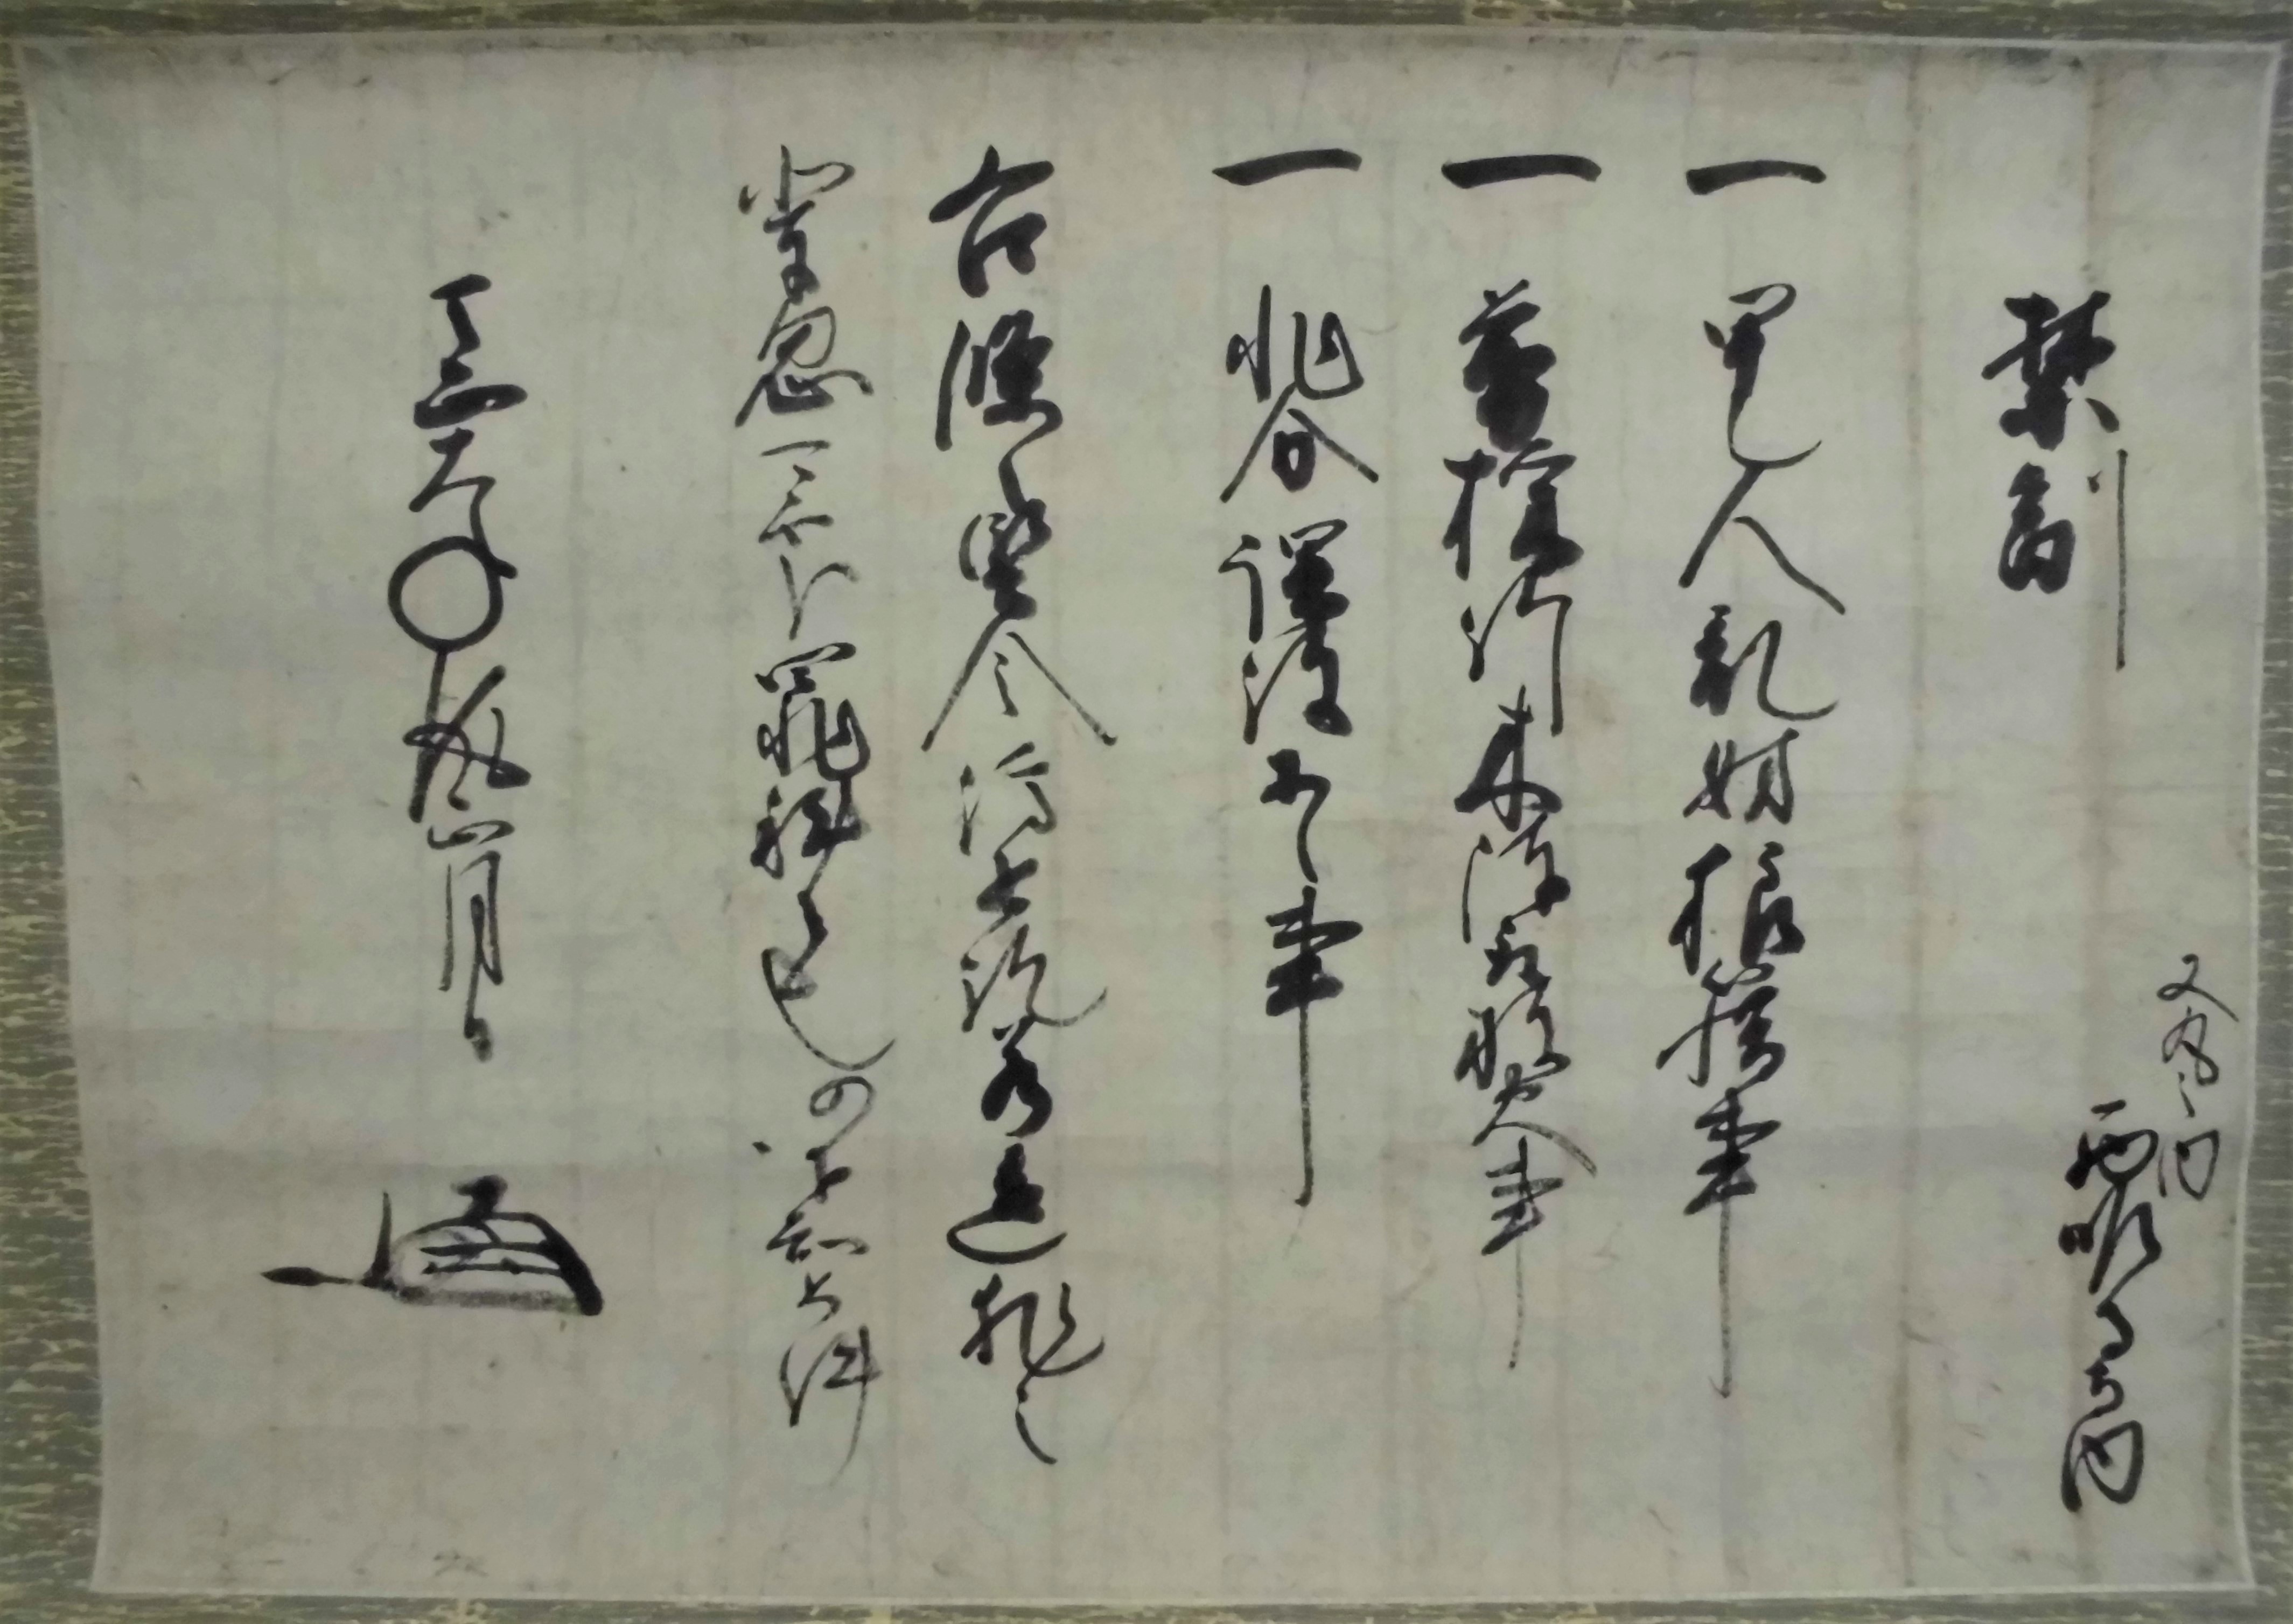 禁制
西明寺
一 甲乙人乱妨狼藉事
一 採竹木陣取放火事
一 非分課役等之事
右條々堅令停止訖若違犯之
輩忽可処罪科者也仍下知如件
天正 月日